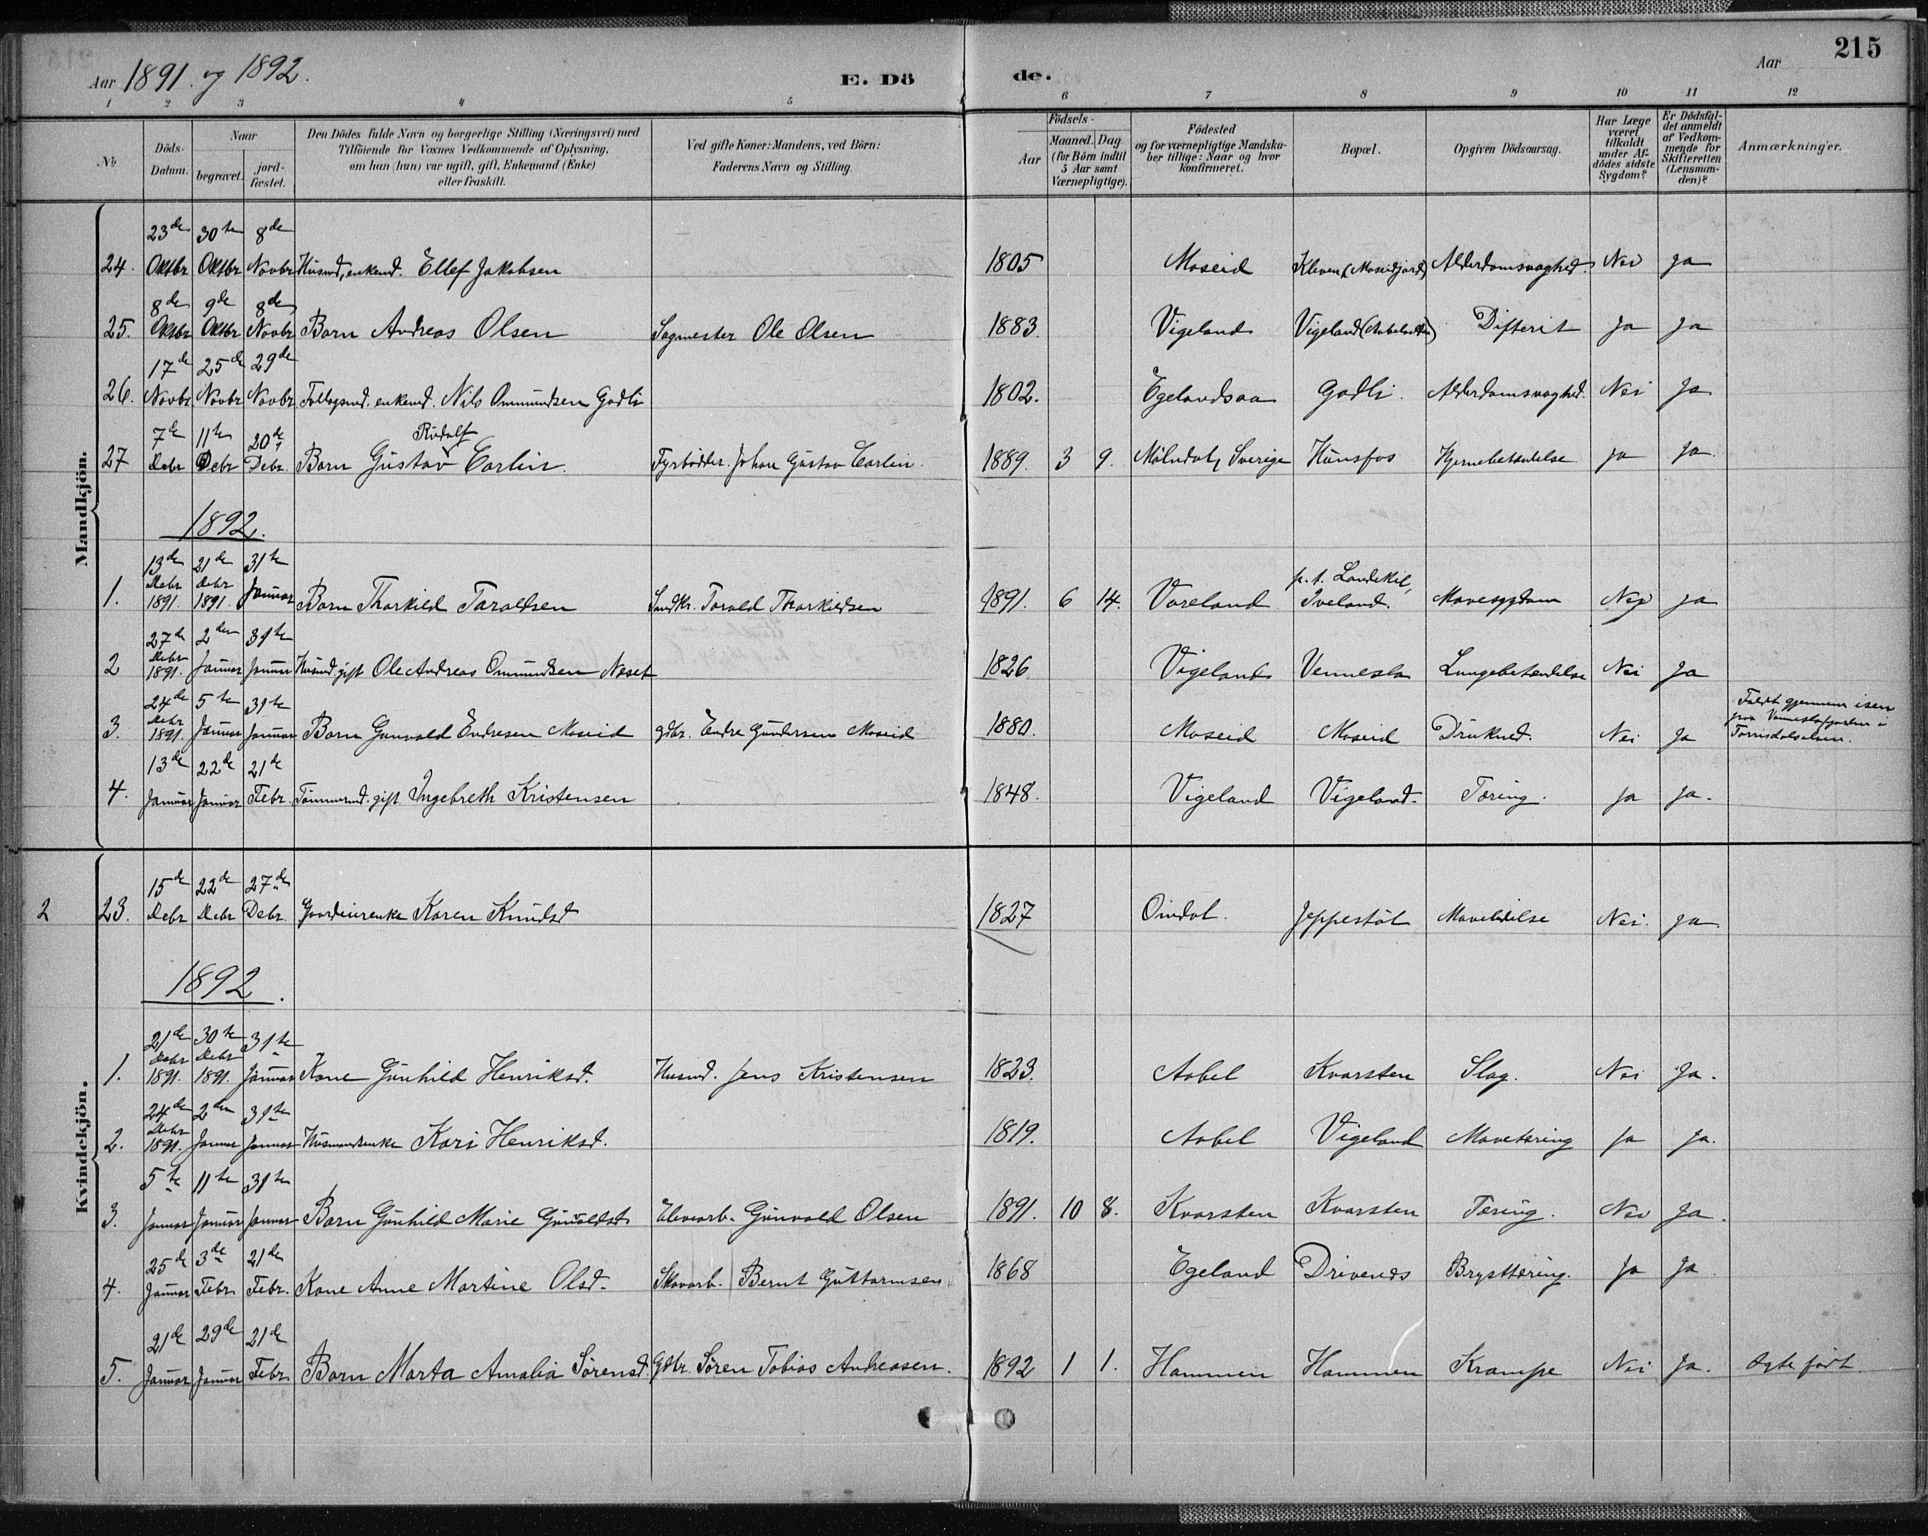 Aar 1891. og 1892. E. Dö de. Aar 215
1 2 3 4 5 6 7 8 9 10 11 12
No
Döds-Datum.
Naar begravet. jordfæstet.
Den Dödes fulde Navn og borgerlige Stilling (Næringsvei) med Tilföiende for Voxnes Vedkommende af Oplysning, om han (hun) var ugift, gift, Enkemand (Enke) eller fraskilt.
Ved gifte Koner: Mandens, ved Börn: Faderens Navn og Stilling.
Födsels-
Aar
Maaned. Dag (for Börn indtil 5 Aar samt Værnepligtige).
Födested og for værnepligtige Mandskaber tillige: Naar og hvor konfirmeret.
Bopæl.
Opgiven Dödsaarsag.
Har Læge været tilkaldt under Afdödes sidste Sygdom?
Er Dödsfaldet anmeldt af Vedkommende for Skifteretten (Lensmanden)?
Anmærkninger.
Mandkjön.
24. 23de Oktbr 30te Oktbr 8de Novbr Husmd, enkemd. Ellef Jakobsen 1805 Moseid Kleven, (Moseidjord) Alderdomsvaghed. Nei Ja
25. 8de Oktbr 9de Oktbr 8de Novbr Barn Andreas Olsen Sagmester Ole Olsen 1883. Vigeland Vigeland Difterit Ja Ja
26. 17de Novbr. 25de Novbr 29de Novbr Follogsmd. enkemd. Nils Ommundsen Godli 1802. Egelandsaa Godli. Alderdomsvaghed. Nei Ja
27 7de Debr 11te Debr 20de Debr. Barn Gustav Rudolf Carlin. Fyrbödder. Johan Gustav Carlin. 1889. 3 9. Mölndal, Sverige Hunsfos Hjernebetændelse Ja Ja.
1892.
1. 13de Debr 1891. 21de Debr 1891. 31te Januar Barn Thorkild Taraldsen Smdkr. Torald Thorkildsen 1891. 6 14. Voreland p.t. Landekil, Iveland. Mavesygdom Nei Ja
2 27de Debr 1891. 2den Januar 31te Januar Husmd gift Ole Andreas Ommundsen Neset 1826 Vigeland Vennesla Lungebetændelse Nei Ja
3. 24de Debr 1891. 5te Januar 31te Januar Barn Gunvald Endresen Moseid gdbr. Endre Gundersen Moseid 1880. Moseid Moseid Druknet. Nei Ja Faldt gjennem isen paa Venneslafjorden i Torrisdalselven.
4. 13de Januar 22de Januar 21de Febr. Tömmermd. gift Ingebreth Kristensen 1848. Vigeland Vigeland. Tæring. Ja Ja.
Kvindekjön.
2 23. 15de Debr 22de Debr 27de Debr. Gaardeierenke Karen Knudsd 1827 Omdal. Jeppestöl Mavelidelse Nei. Ja
1892.
1. 21de Debr 1891. 30te Debr 1891. 31te Januar Kone Gunhild Henriksd. Husmd. Jens Kristensen 1823. Aabel Kvarsten Slag. Nei Ja.
2. 24de Debr 1891. 2den Januar 31te Januar Husmandsenke Kari Henriksd. 1819. Aabel Vigeland Mavetæring Ja Ja.
3. 5te Januar 11te Januar 31te Januar Barn Gunhild Marie Gunvaldsd Elevarb. Gunvald Olsen 1891. 10 8. Kvarsten Kvarsten Tæring. Nei Ja.
4. 25de Januar 3de Febr. 21de Febr. Kone Anne Martine Olsd. Skovarb. Bernt Guttormsen 1868 Egeland Drivenes Brysttæring. Ja Ja
5. 21de Januar 29de Januar 21de Febr. Barn Marta Amalia Sörensd. Gdbr. Sören Tobias Andreasen. 1892 1 1. Hammen Hammen Krampe Nei Ja. Ægte født.